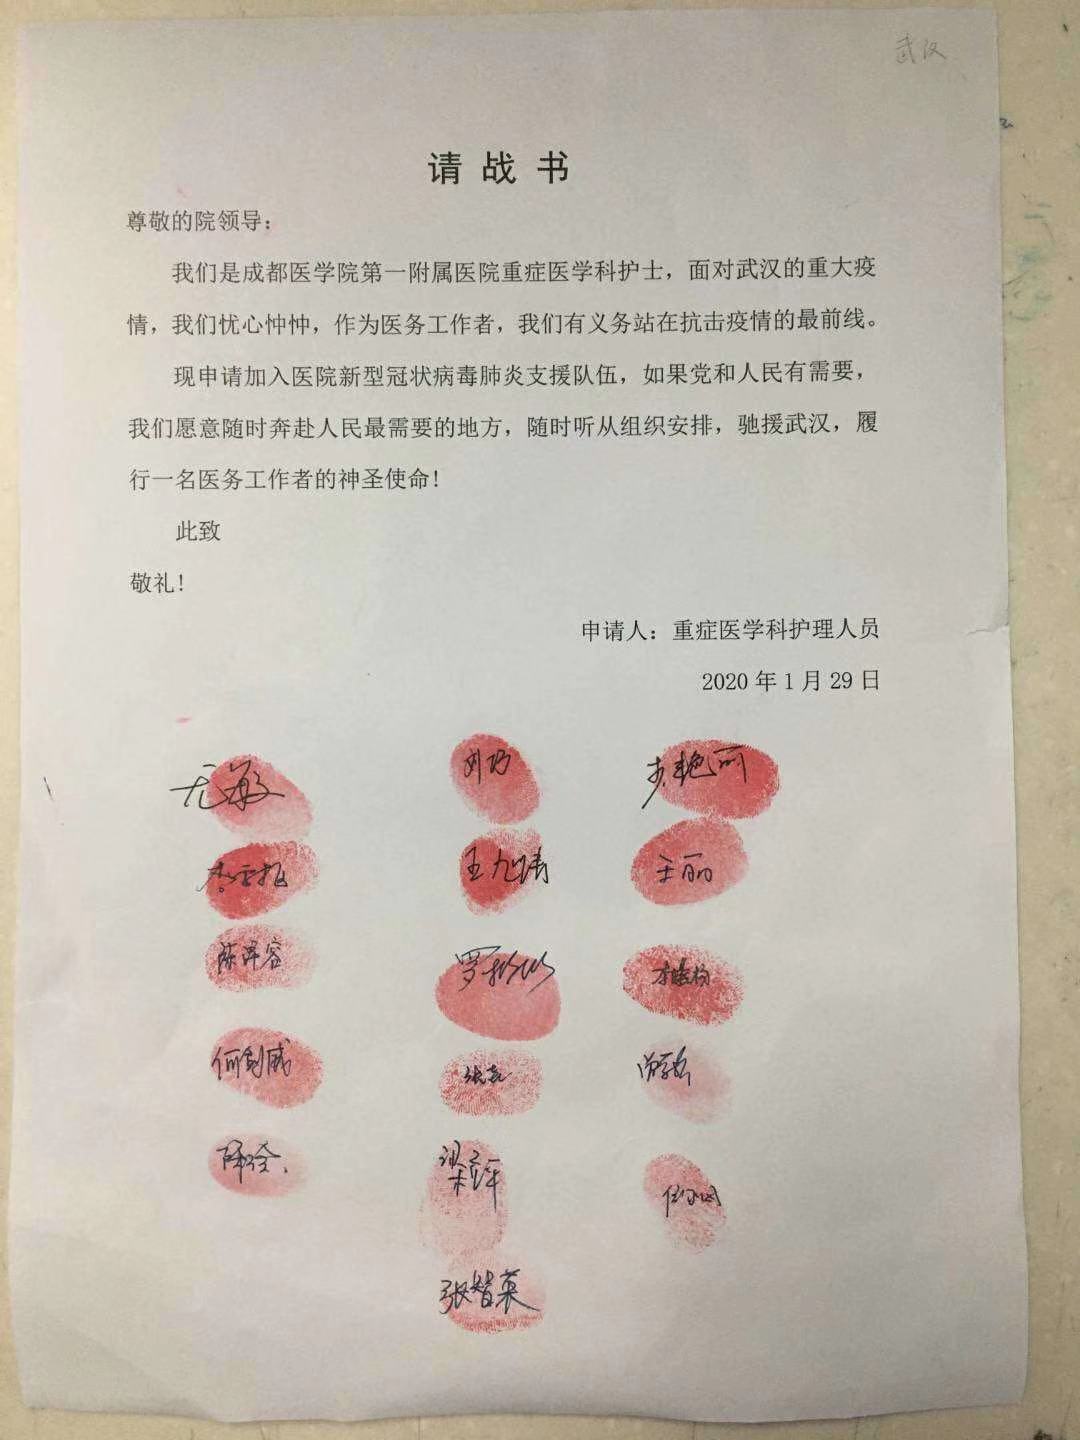 武汉
请战书
尊敬的院领导：
我们是成都医学院第一附属医院重症医学科护士，面对武汉的重大疫
情，我们忧心忡忡，作为医务工作者，我们有义务站在抗击疫情的最前线。
现申请加入医院新型冠状病毒肺炎支援队伍，如果党和人民有需要，
我们愿意随时奔赴人民最需要的地方，随时听从组织安排，驰援武汉，履
行一名医务工作者的神圣使命！
此致
敬礼！
申请人：重症医学科护理人员
2020年1月29日
尤敏
刘巧
王丽
陈泽容
张智英